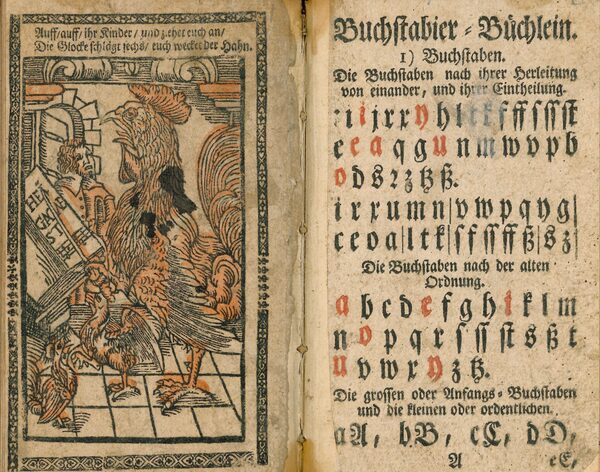 Auff/auff/ihr Kinder/und zehet euch an/
Die Glocke schlägt sechs/ euch wecket der Hahn.
Buchstabier-Büchlein.
1) Buchstaben.
Die Buchstaben nach ihrer Herleitung
von einander, und ihrer Eintheilung.
i j r x y h l t k f ff ſ ſſ ſt
e c a q g u n m w v p b
o d s ꝛ z tz ß.
i r x u m n|v w p q y g|
c e o a|l t k|ſ f ſſ ff ß|s z|
Die Buchstaben nach der alten
Ordnung.
a b c d e f g h i k l m
n o p q r ſ ſſ ſt s ß t
u v w x y z tz.
Die grossen oder Anfangs-Buchstaben
und die kleinen oder ordentlichen.
aA, bB, cC, dD,
A eE,